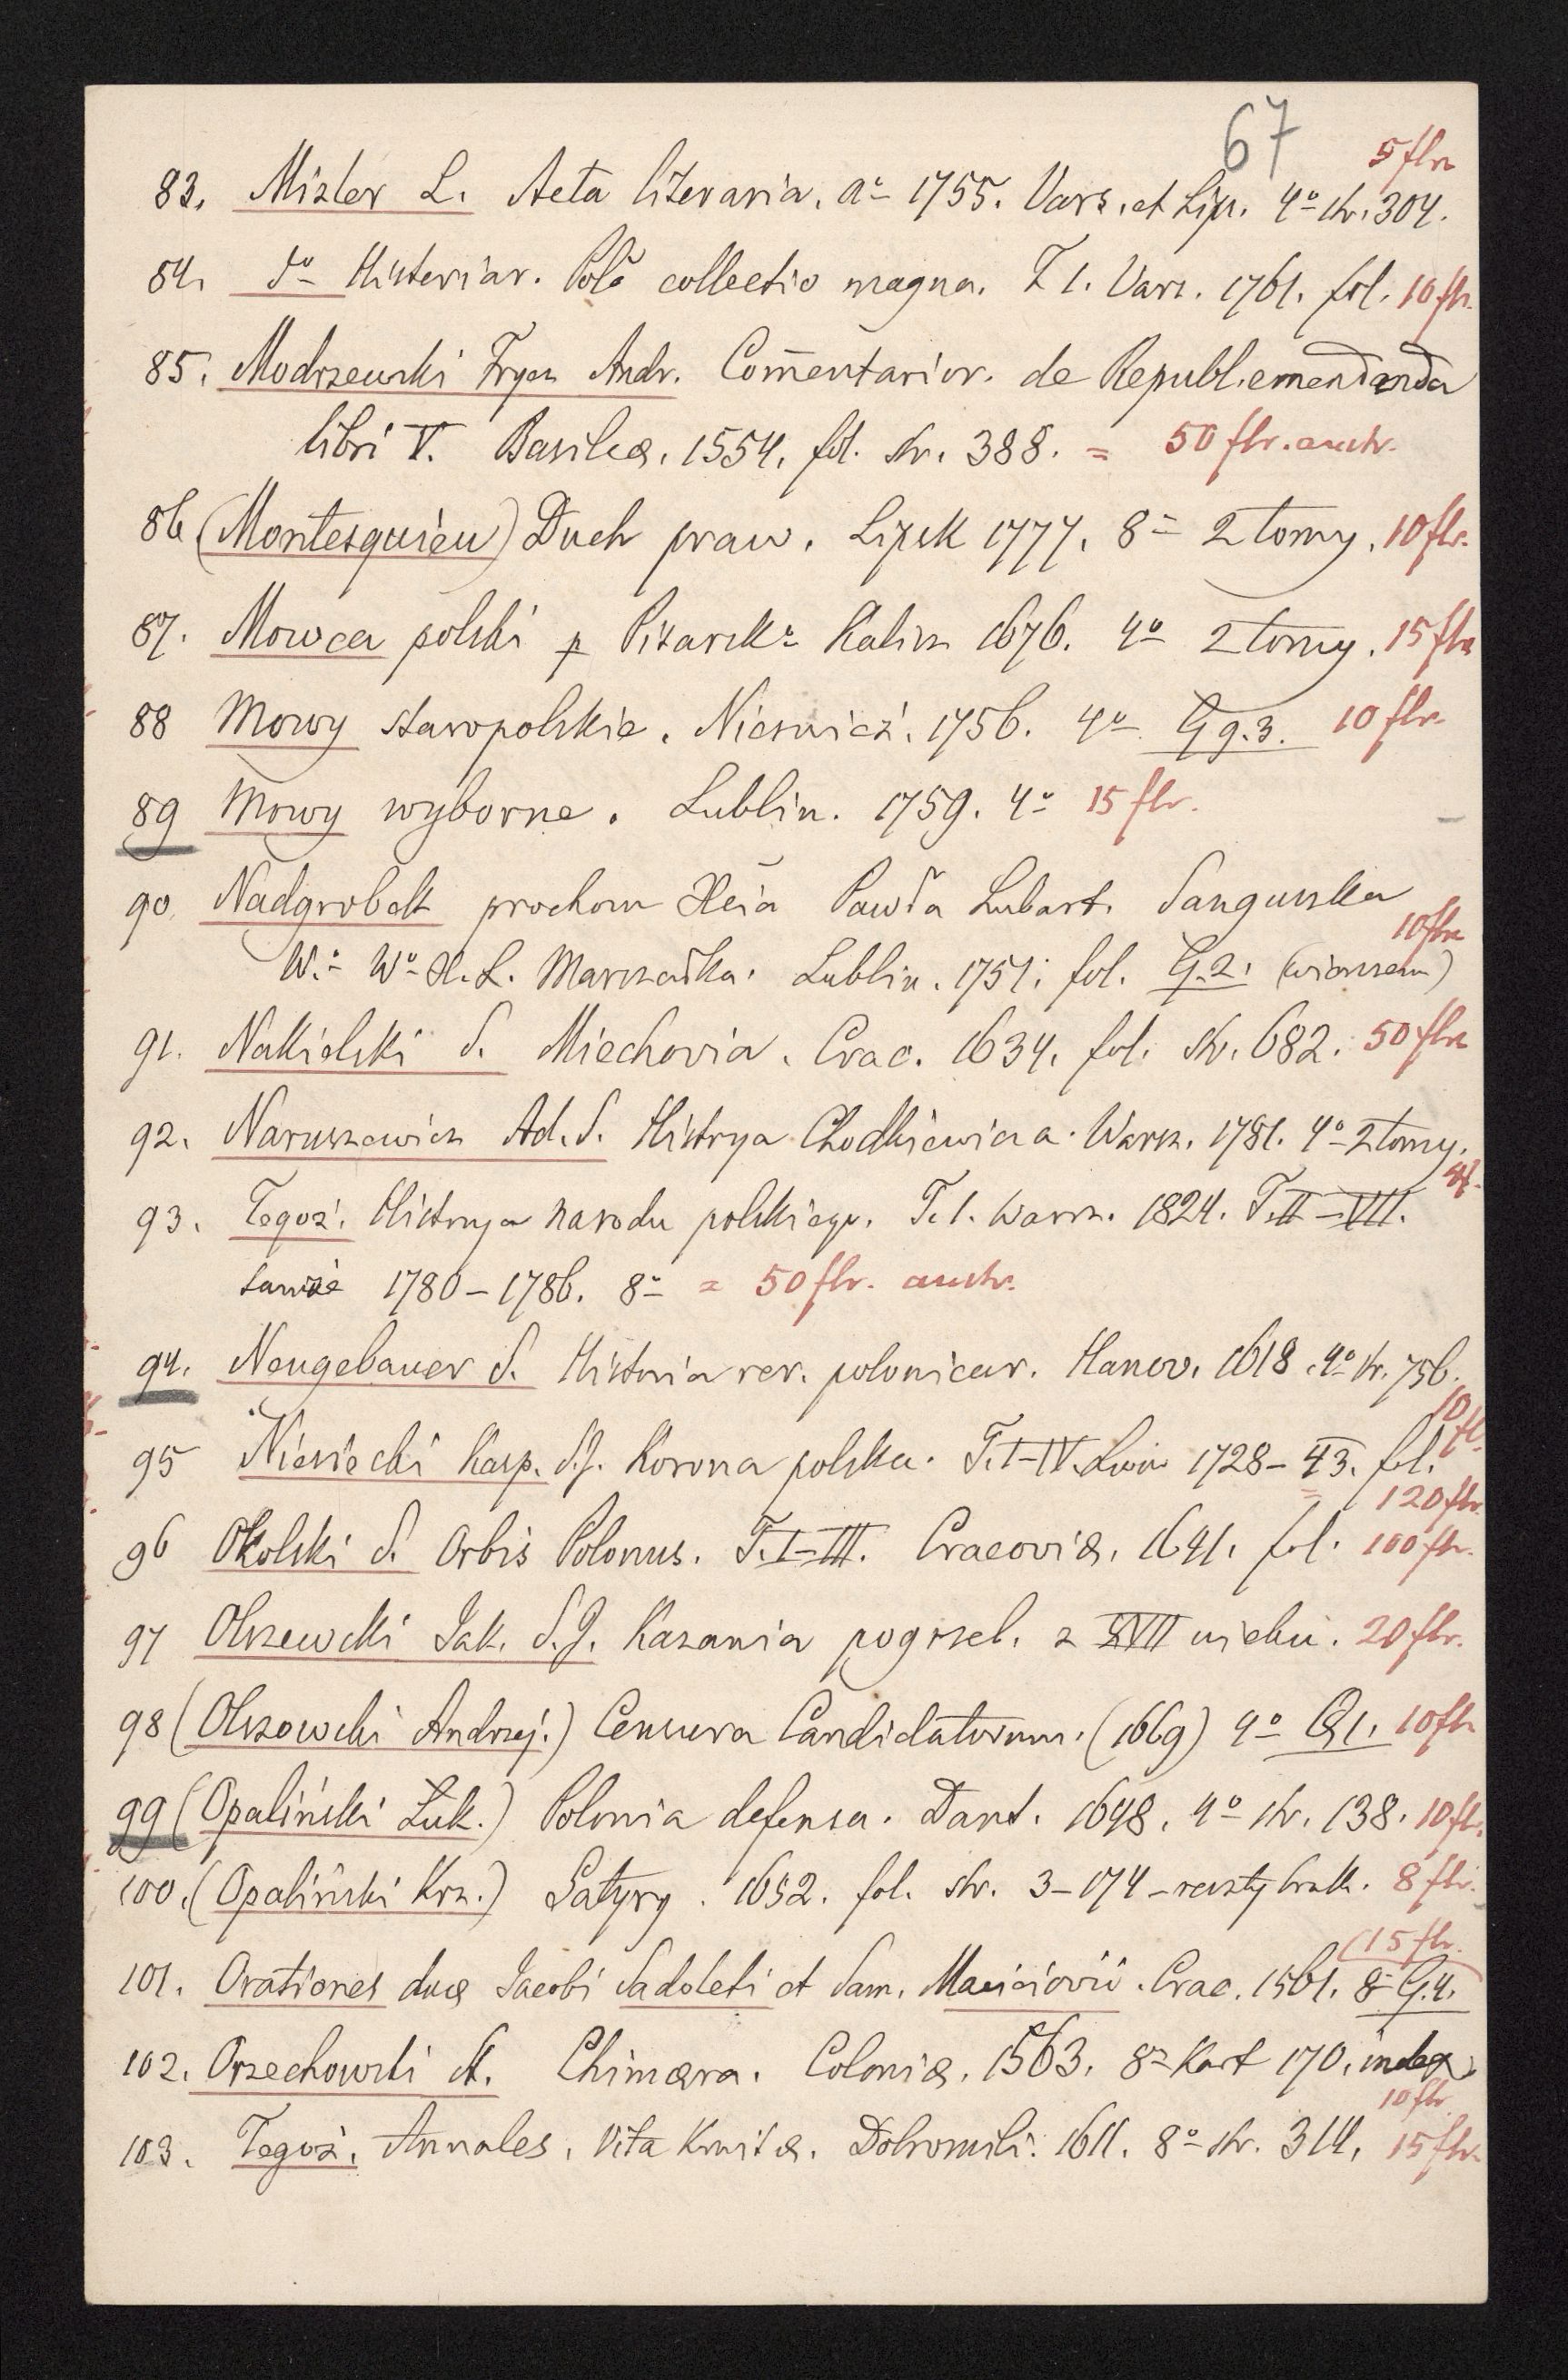 67
5 flr
83. Mizler L. Acta literaria. aº 1755. Vars. et Lip. 4º str. 304.
84. dº Historiar. Polo collectio magna. T 1. Vars. 1761. fol. 10 flr.
85. Modrzewski Frycz Andr. Com̄entarior. de Republ. emendanda
libri V. Basileæ. 1554. fol. str. 388. = 50 flr. austr.
86 (Montesquieu) Duch praw. Lipsk 1777. 8º 2 tomy. 10 flr.
87. Mowca polski p Pisarskº Kalisz 1676. 4º 2 tomy. 15 flr
88 Mowy staropolskie. Nieswież. 1756. 4º G g. 3. 10 flr.
89 Mowy wyborne. Lublin. 1759. 4º 15 flr.
90 Nadgrobek prochom Xcia Pawła Lubart. Sanguszka
10 flr
W.º Wº X. L. Marszałka. Lublin. 1751. fol. G. 2. (wierszem)
91. Nakielski S. Miechovia. Crac. 1634. fol. str. 682. 50 flr
92. Naruszewicz Ad. S. Historya Chodkiewicza. Warsz. 1781. 4º 2 tomy.
93. Tegoż. Historya narodu polskiego. T. 1. Warsz. 1824. T. II – VII.
tamże 1780 – 1786. 8º = 50 flr. austr.
94. Neugebauer S. Historia rer. polonicar. Hanov. 1618. 4º str. 756.
10 fl.
95 Niesiecki Kasp. S. J. Korona polska. T. I – IV. Lwów 1728 – 43. fol.
120 flr.
96 Okolski S. Orbis Polonus. T. I – III. Cracoviæ. 1641. fol. 100 flr.
97 Olszewski Jak. S. J. Kazania pogrzeb. z XVII wieku. 20 flr.
98 (Olszowski Andrzej.) Censura Candidatorum. (1669) 4º Q 1. 10 flr
99 (Opaliński Łuk.) Polonia defensa. Dant. 1648. 4º str. 138. 10 flr.
100. (Opaliński Krz.) Satyry. 1652. fol. str. 3 – 174 – reszty brak. 8 flr.
(15 flr.
101. Orationes duæ Jacobi Sadoleti et Sam. Maciciovii. Crac. 1561. 8º G. 4.
102. Orzechowski St. Chimæra. Coloniæ. 1563. 8º Kart 170. index.
10 flr
103. Tegoż. Annales. Vita Kmitæ. Dobromili. 1611. 8º str. 314. 15 flr.